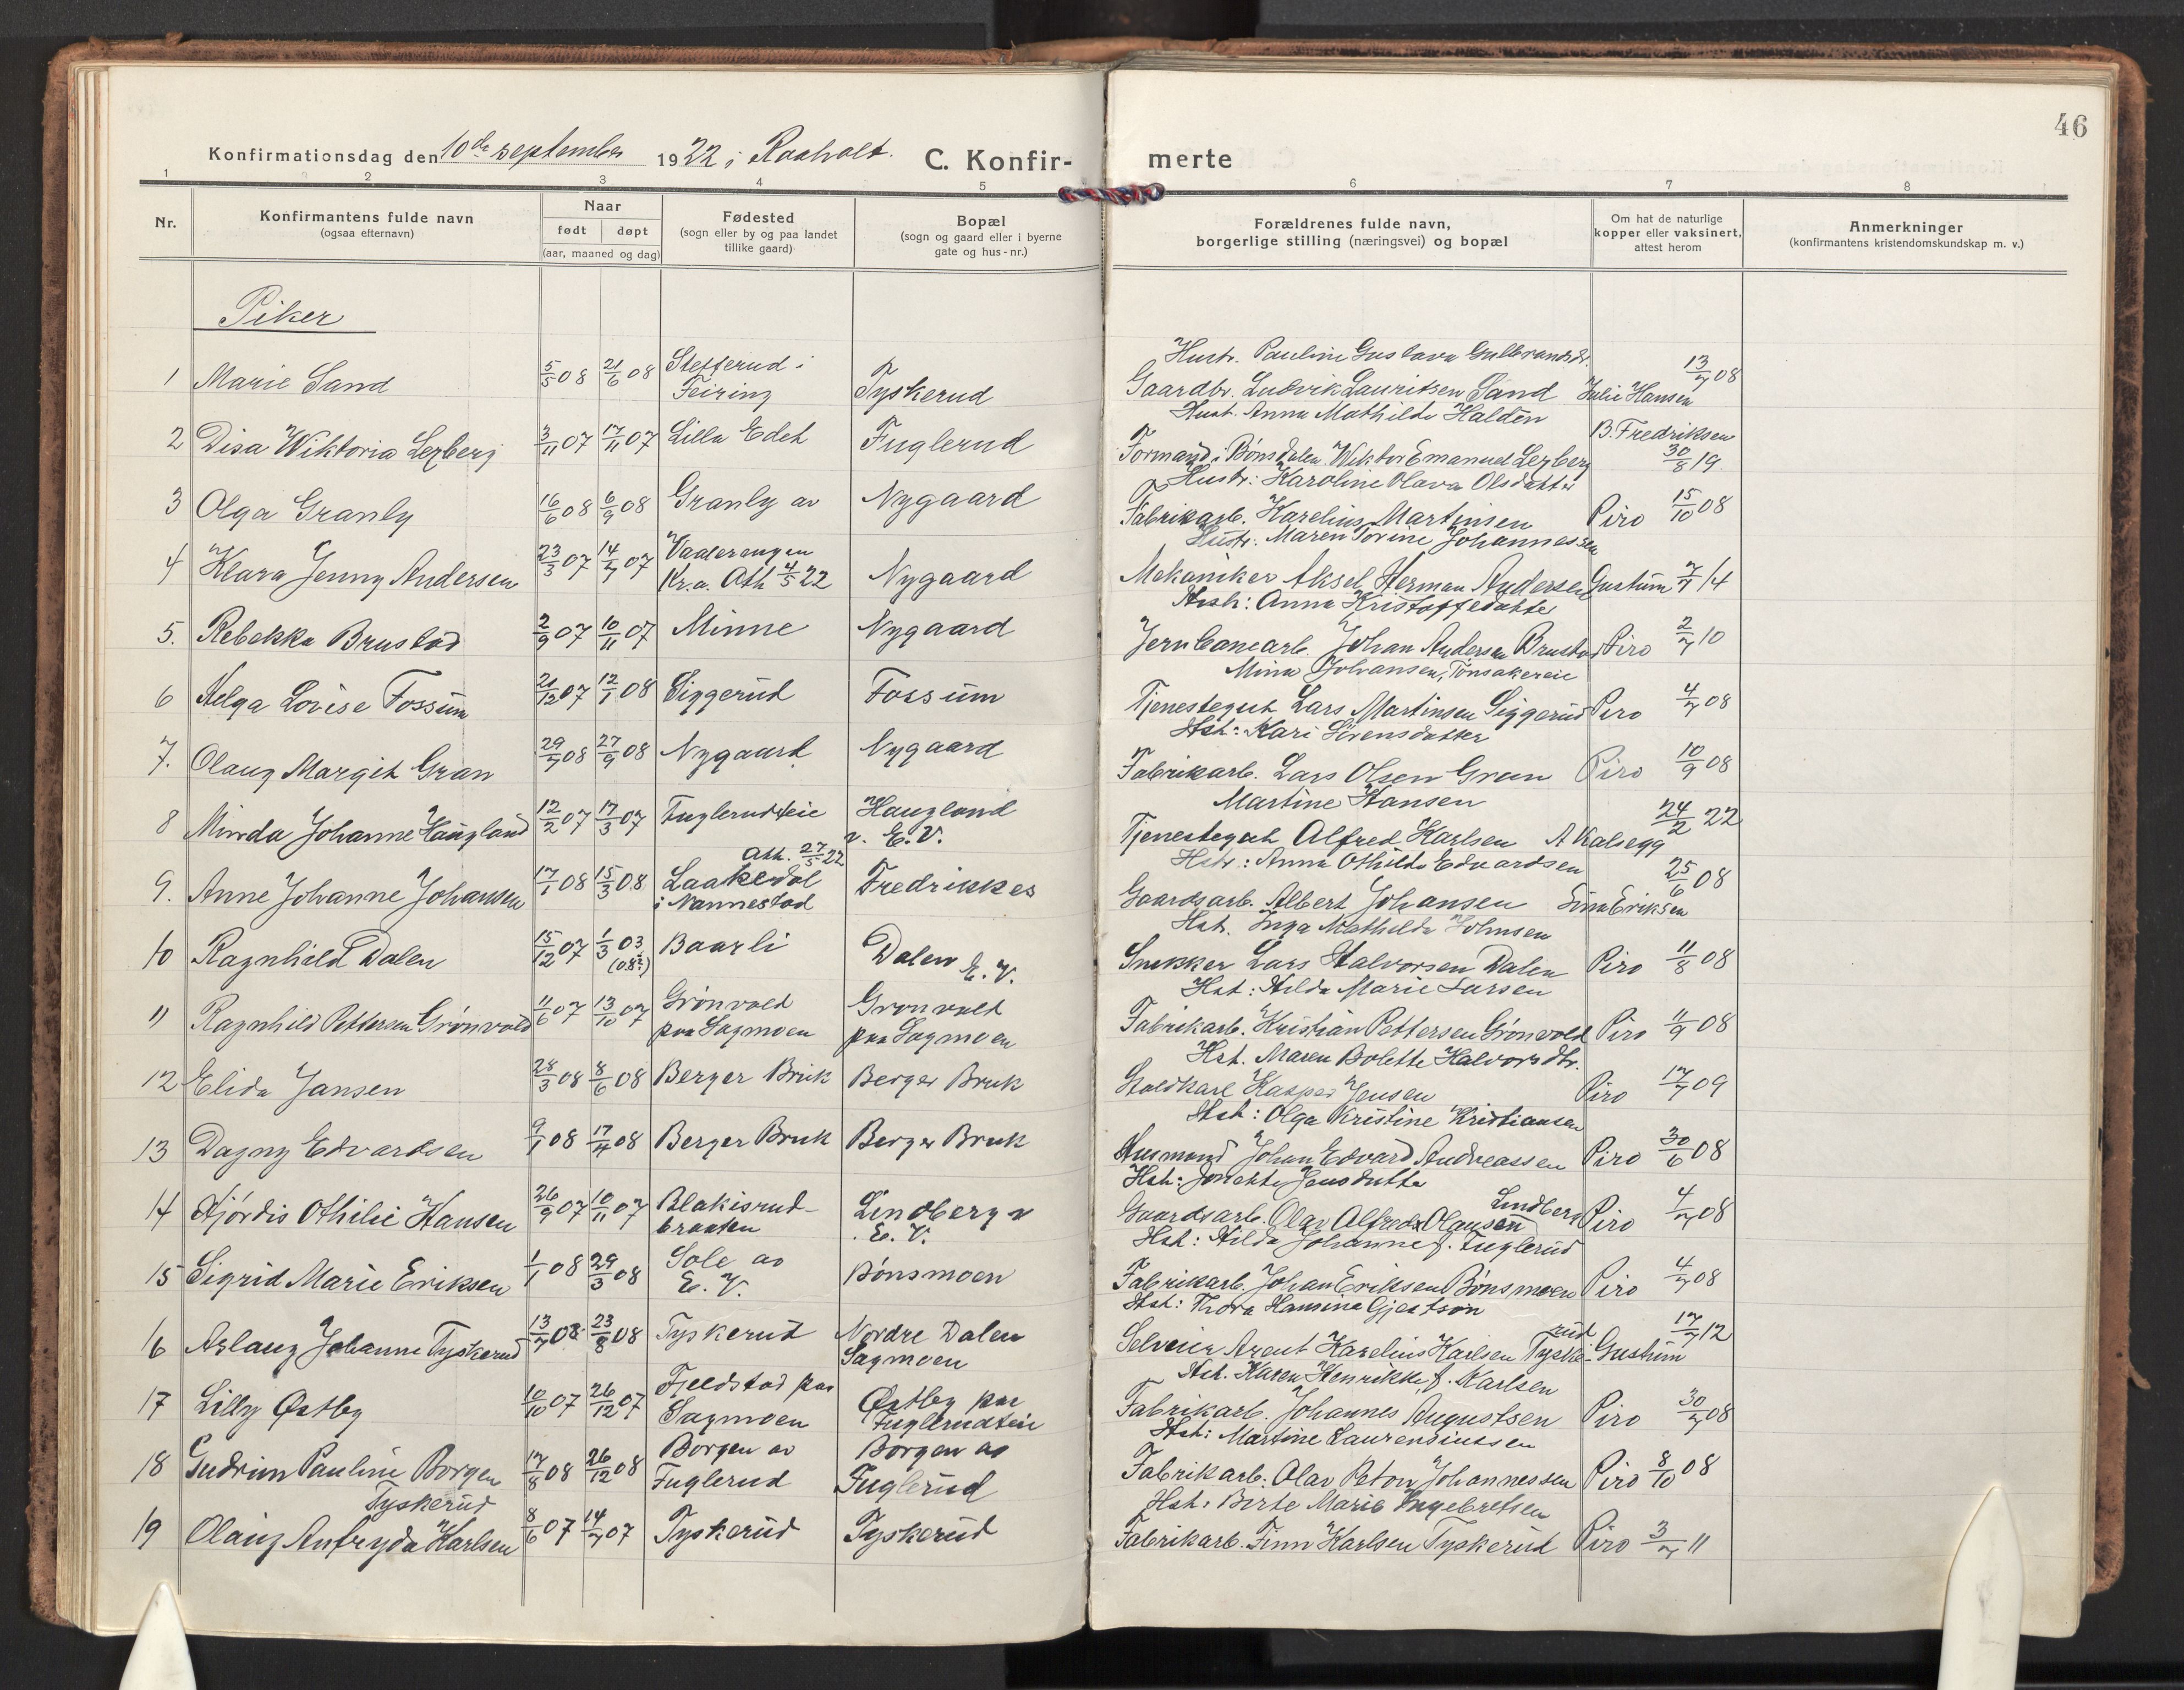 46
Konfirmationsdag den 10de september 1922 i Raaholt.
C. Konfirmerte
1 2 3 4 5 6 7 8
Nr.
Konfirmantens fulde navn
(ogsaa efternavn)
Naar
født døpt
(aar, maaned og dag)
Fødested
(sogn eller by og paa landet
tillike gaard)
Bopæl
(sogn og gaard eller i byerne
gate og hus-nr.)
Forældrenes fulde navn,
borgerlige stilling (næringsvei) og bopæl
Om hat de naturlige
kopper eller vaksinert,
attest herom
Anmerkninger
(konfirmantens kristendomskundskap m. v.)
Piker
Hustr. Pauline Gustava Gulbrandsdr.
1 Marie Sand 5/5 08 21/6 08 Stefferud i Feiring Tyskerud Gaardbr. Ludvik Lauritsen Sand Julie Hansen 13/7 08
Hust. Anna Mathilde Halden
2 Disa Wiktoria Lezberg 3/11 07 17/11 07 Lilla Edet Fuglerud Formand i Bønsdalen Wiktor Emanuel Lezberg B. Fredriksen 30/8 19
Hustr: Karoline Olava Olsdatter
3 Olga Granly 16/6 08 6/9 08 Granly av Nygaard Fabrikarb. Karelius Martinsen Piro 15/10 08
Hustr. Maren Torine Johannessen
4 Klara Jenny Andersen 23/3 07 14/7 07 Vaalerengen Kr.a. Ath 4/5 22 Nygaard Mekaniker Aksel Herman Andersen Gustum 7/7 14
Hust: Anna Kristoffedatter
5. Rebekka Brustad 2/9 07 10/11 07 Minne Nygaard Jernbanearb. Johan Andersen Brustad Piro 2/7 10
Mina Johansen, Tønsakereie
6 Helga Lovise Fossum 21/12 07 12/1 08 Siggerud Fossum Tjenestegut Lars Martinsen Siggerud Piro 4/7 08
Hst: Kari Sørensdatter
7. Olaug Margit Gran 29/7 08 27/9 08 Nygaard Nygaard Fabrikarb. Lars Olsen Gran Piro 10/9 08
Martine Hansen
8 Minda Johanne Haugland 12/2 07 17/3 07 Fuglerudeie Haugland v. E.V. Tjenestegut Alfred Karlsen A Kalsegg 24/2 22
Hstr: Anna Othilde Edvardsen
9. Anne Johanne Johansen 17/1 08 15/3 08 Ath. 27/5 22 Laakedal i Nannestad Fredrikkes Gaardsarb. Albert Johansen Sina Eriksen 25/6 08
Hst. Inga Mathilde Johnsen
10 Ragnhild Dalen 15/12 07 1/3 03 (08?) Baarli Dalen E.V. Snekker Lars Halvorsen Dalen Piro 11/8 08
Hst: Hilda Marie Larsen
11 Ragnhild Pettersen Grønvold 11/6 07 13/10 07 Grønvold paa Sagmoen Grønvold paa Sagmoen Fabrikarb. Kristian Pettersen Grønvold Piro 11/9 08
Hst. Maren Bolette Halvorsdtr.
12 Elida Jansen 28/3 08 8/6 08 Berger Bruk Berger Bruk Staldkarl Kasper Jensen Piro 17/7 09
Hst: Olga Kristine Kristiansen
13 Dagny Edvardsen 9/1 08 17/4 08 Berger Bruk Berger Bruk Husmand Johan Edvard Andreassen Piro 30/6 08
Hst: Josefette Jensdatter
14 Hjørdis Othilie Hansen 26/9 07 10/11 07 Blakisrud-braaten Lindberg v E.V. Gaardsarb. Olav Alfred Olausen Lindberg Piro 4/7 08
Hst: Hilda Johanne f. Fuglerud
15 Sigrid Marie Eriksen 1/1 08 29/3 08 Sole av E.V. Bønsmoen Fabrikarb. Johan Eriksen Bønsmoen Piro 4/7 08
Hst: Thora Hansine Gjestson
16 Aslaug Johanne Tyskerud 13/7 08 23/8 08 Tyskerud Nordre Dalen Sagmoen Selveier Arent Karelius Karlsen Tyskerud Gustum 17/7 12
Hst. Karen Henrikke f. Karlsen
17 Lilly Østby 10/10 07 26/12 07 Fjeldstad paa Sagmoen Østby paa Fuglerudeie Fabrikarb. Johannes Augustsen Piro 30/7 08
Hst: Martine Laurensiussen
18 Gudrun Pauline Borgen 17/8 08 26/12 08 Borgen av Fuglerud Borgen av Fuglerud Fabrikarb. Olav Peton Johannessen Piro 8/10 08
Tyskerud
Hst: Berte Marie Engebretsen
19 Olaug Anfryda Karlsen 8/6 07 14/7 07 Tyskerud Tyskerud Fabrikarb. Finn Karlsen Tyskerud Piro 3/7 11